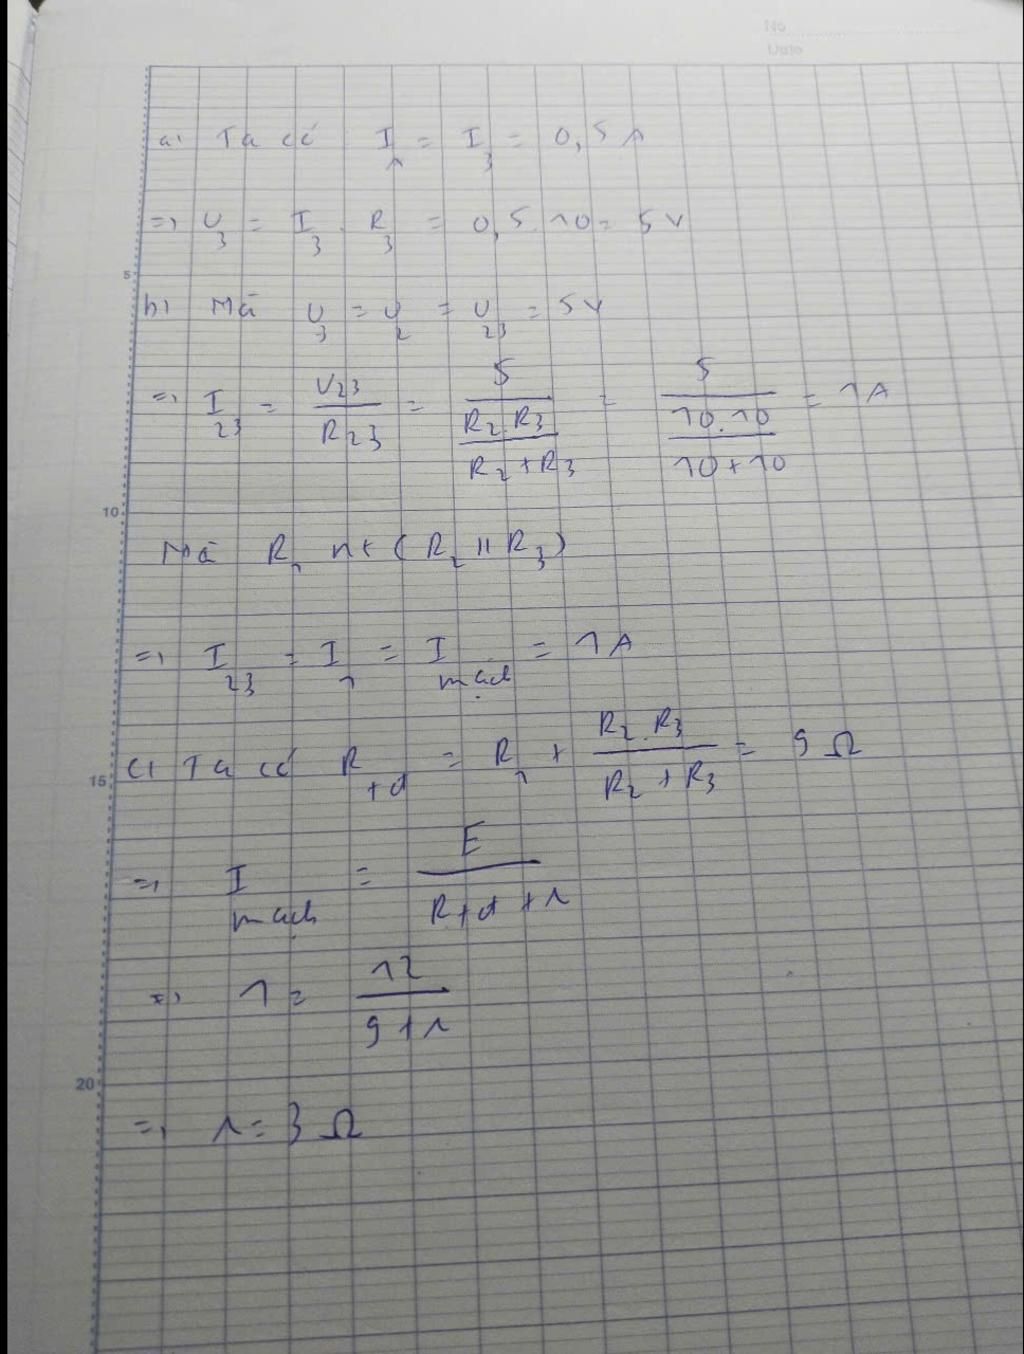 No
Date
a) Ta có I_A = I_3 = 0,5 A
=> U_3 = I_3 . R_3 = 0,5 . 10 = 5 V
5
b) Mà U_3 = U_2 = U_23 = 5V
=> I_23 = U_23 / R_23 = 5 / ((R_2.R_3) / (R_2 + R_3)) = 5 / ((10.10) / (10 + 10)) = 1A
10
Mà R_1 nt (R_2 // R_3)
=> I_23 = I_1 = I_mạch = 1A
c) Ta có R_tđ = R_1 + (R_2.R_3) / (R_2 + R_3) = 9 Ω
15
=> I_mạch = E / (R_tđ + r)
=> 1 = 12 / (9 + r)
20
=> r = 3 Ω